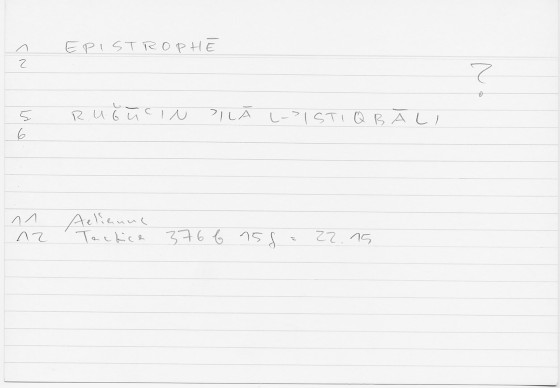 1 EPISTROPHĒ
2
?
5 RUǦŪʿIN ʾILĀ L-ʾISTIQBĀLI
6
11 Aelianus
12 Tactica 376 b 15f = 22.15